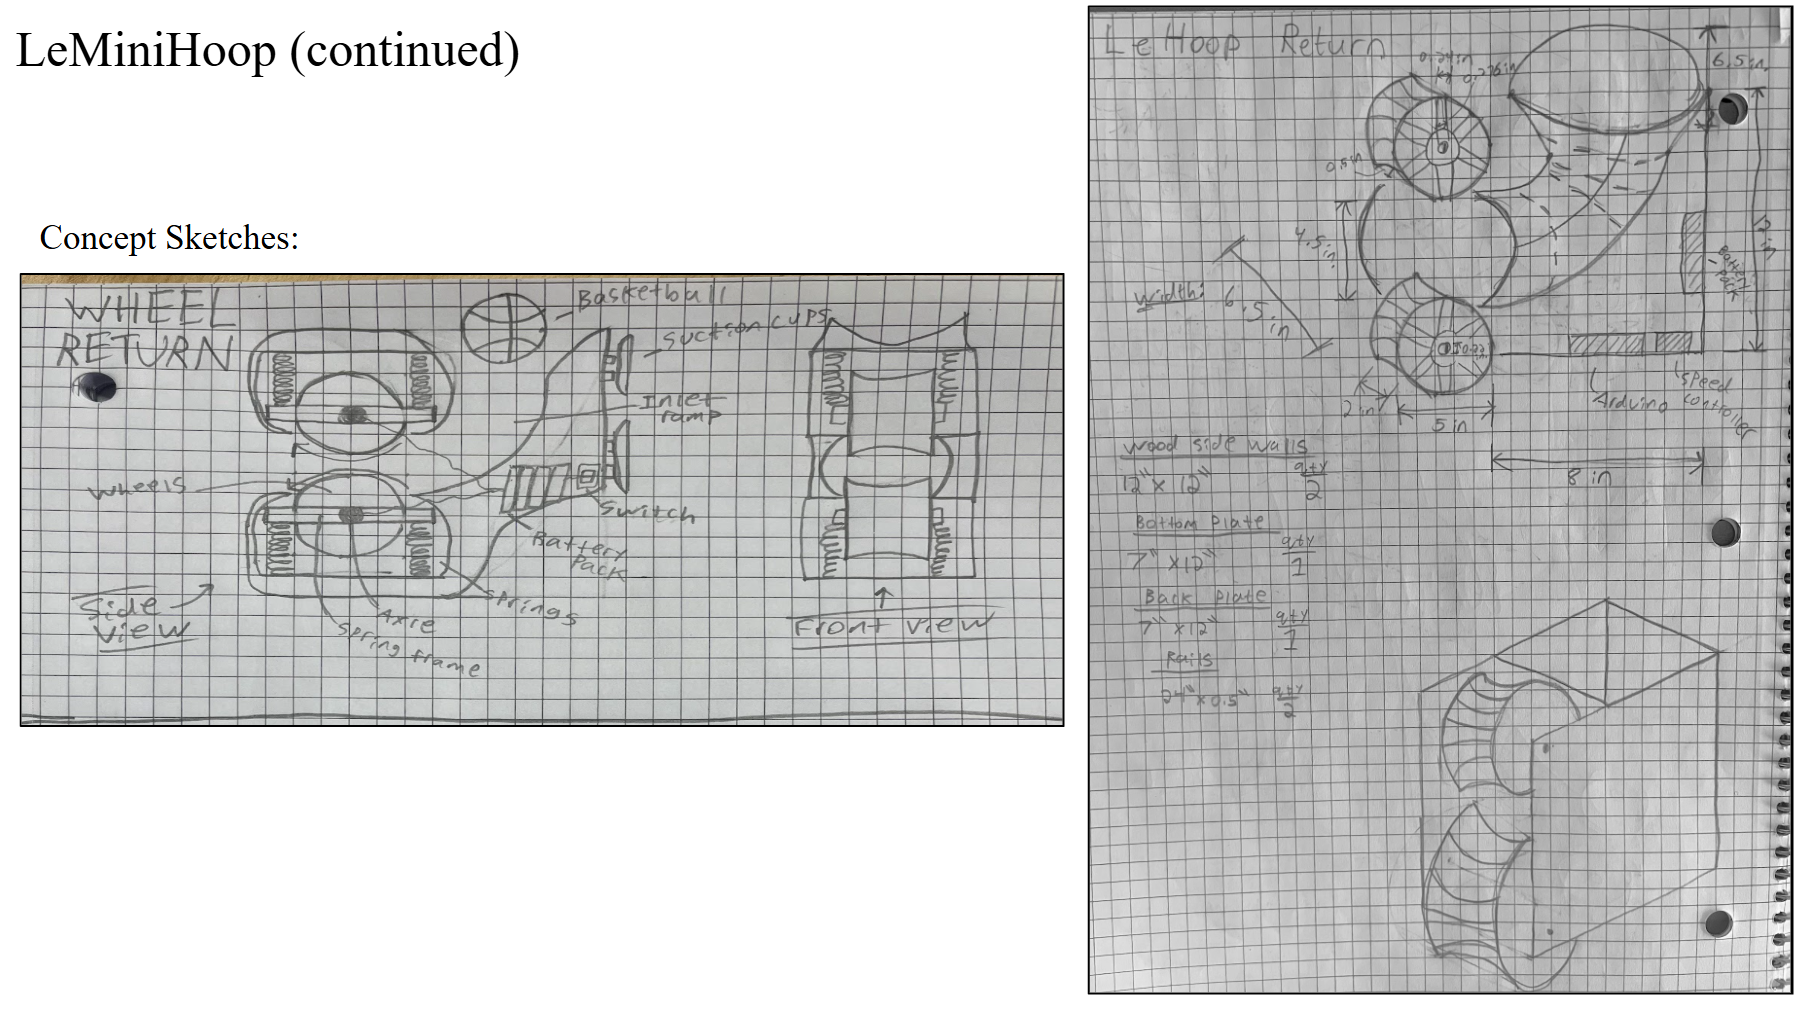 LeMiniHoop (continued)
Concept Sketches:
WHEEL
RETURN
Basketball
Suction cups
Inlet
ramp
Wheels
Switch
Battery
Pack
Springs
Axle
Spring frame
Side
View
Front View
Le Hoop Return
0.24in
0.276in
6.5in.
0.5in
4.5in.
12in
Battery
Pack
Width: 6.5in
2in
5in
Arduino
Speed
Controller
8 in
Wood side walls
12" x 12" qty
2
Bottom Plate
7" x12" qty
1
Back Plate
7" x12" qty
1
Rails
24" x0.5" qty
2